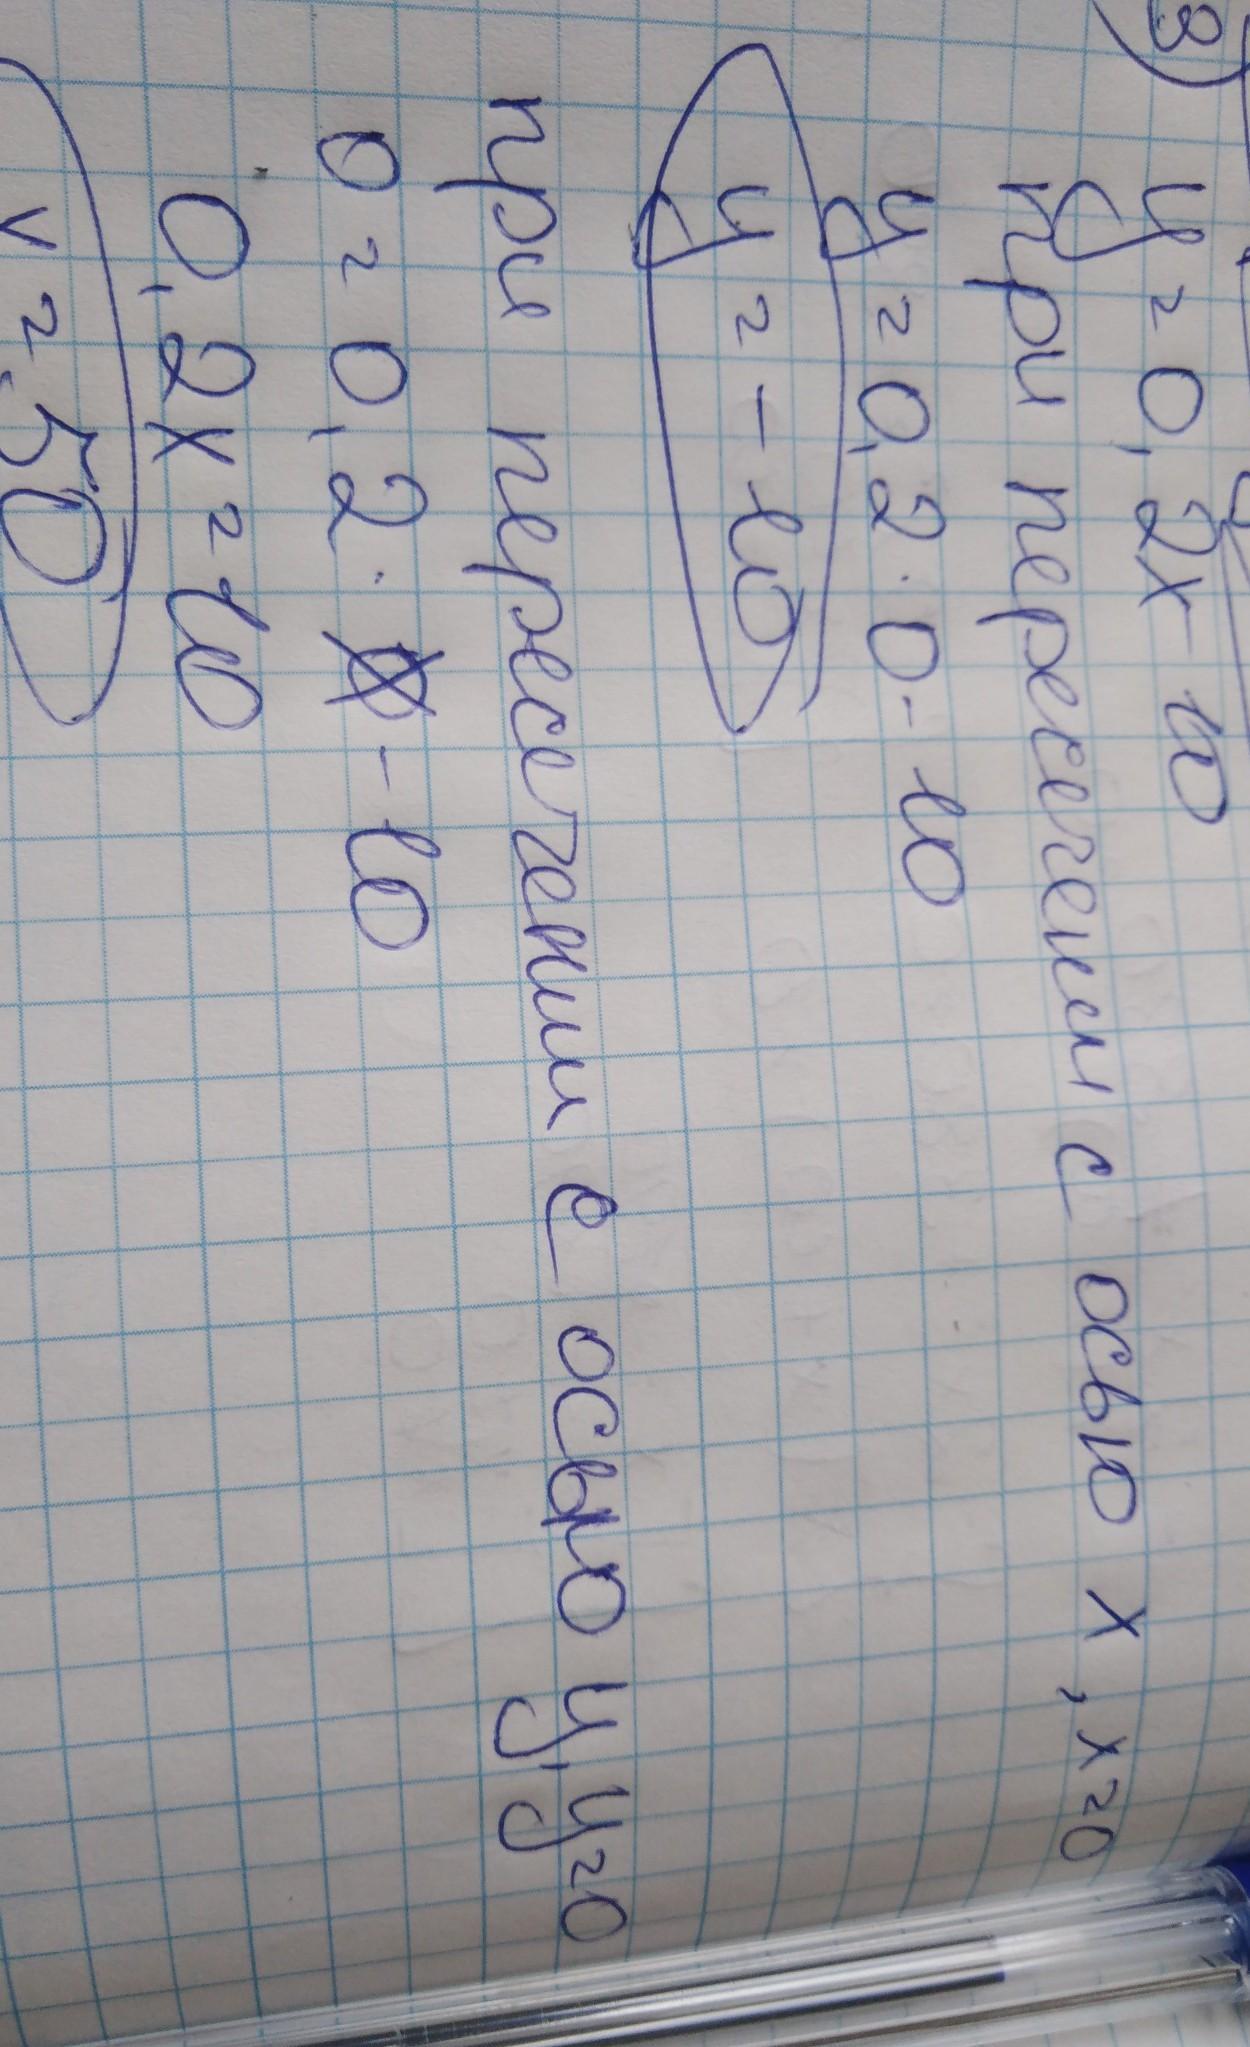 3) y = 0,2x - 10
при пересечении с осью x, x=0
y = 0,2 · 0 - 10
y = -10
при пересечении с осью y, y=0
0 = 0,2 · x - 10
0,2x = 10
x = 50